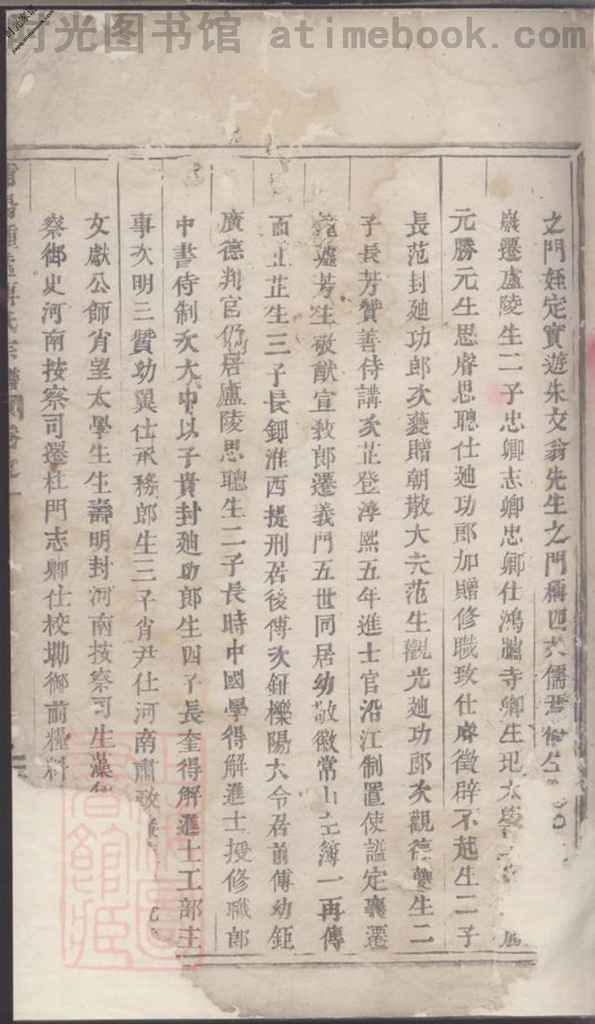 时光图书馆 atimebook.com
之門姪定實遊朱文翁先生之門稱四大儒
遷廬陵生二子忠卿志卿忠卿仕鴻臚寺卿生
元勝元生思睿思聰仕廸功郎加贈修職致仕睿徵辟不起生二子
長范封廸功郎次藝贈朝散大夫范生觀光廸功郎次觀德藝生二
子長芳贊善侍講次芷登淳熙五年進士官沿江制置使謚定襄遷
芳生敬猷宣教郎遷義門五世同居幼敬徽常山主簿一再傳
而上芷生三子長鉚淮西提刑居後傳次鈃櫟陽大令居前傳幼鉅
廣德判官仍居廬陵思聰生二子長時中國學得解進士授修職郎
中書侍制次大中以子貴封廸功郎生四子長奎得解進士工部主
事次明三贊功翼仕承務郎生三子肖尹仕河南肅政
文獻公師肖望太學生生壽明封河南按察司生藻
察御史河南按察司遷杜門志卿仕校勘御前糧料
氏宗譜